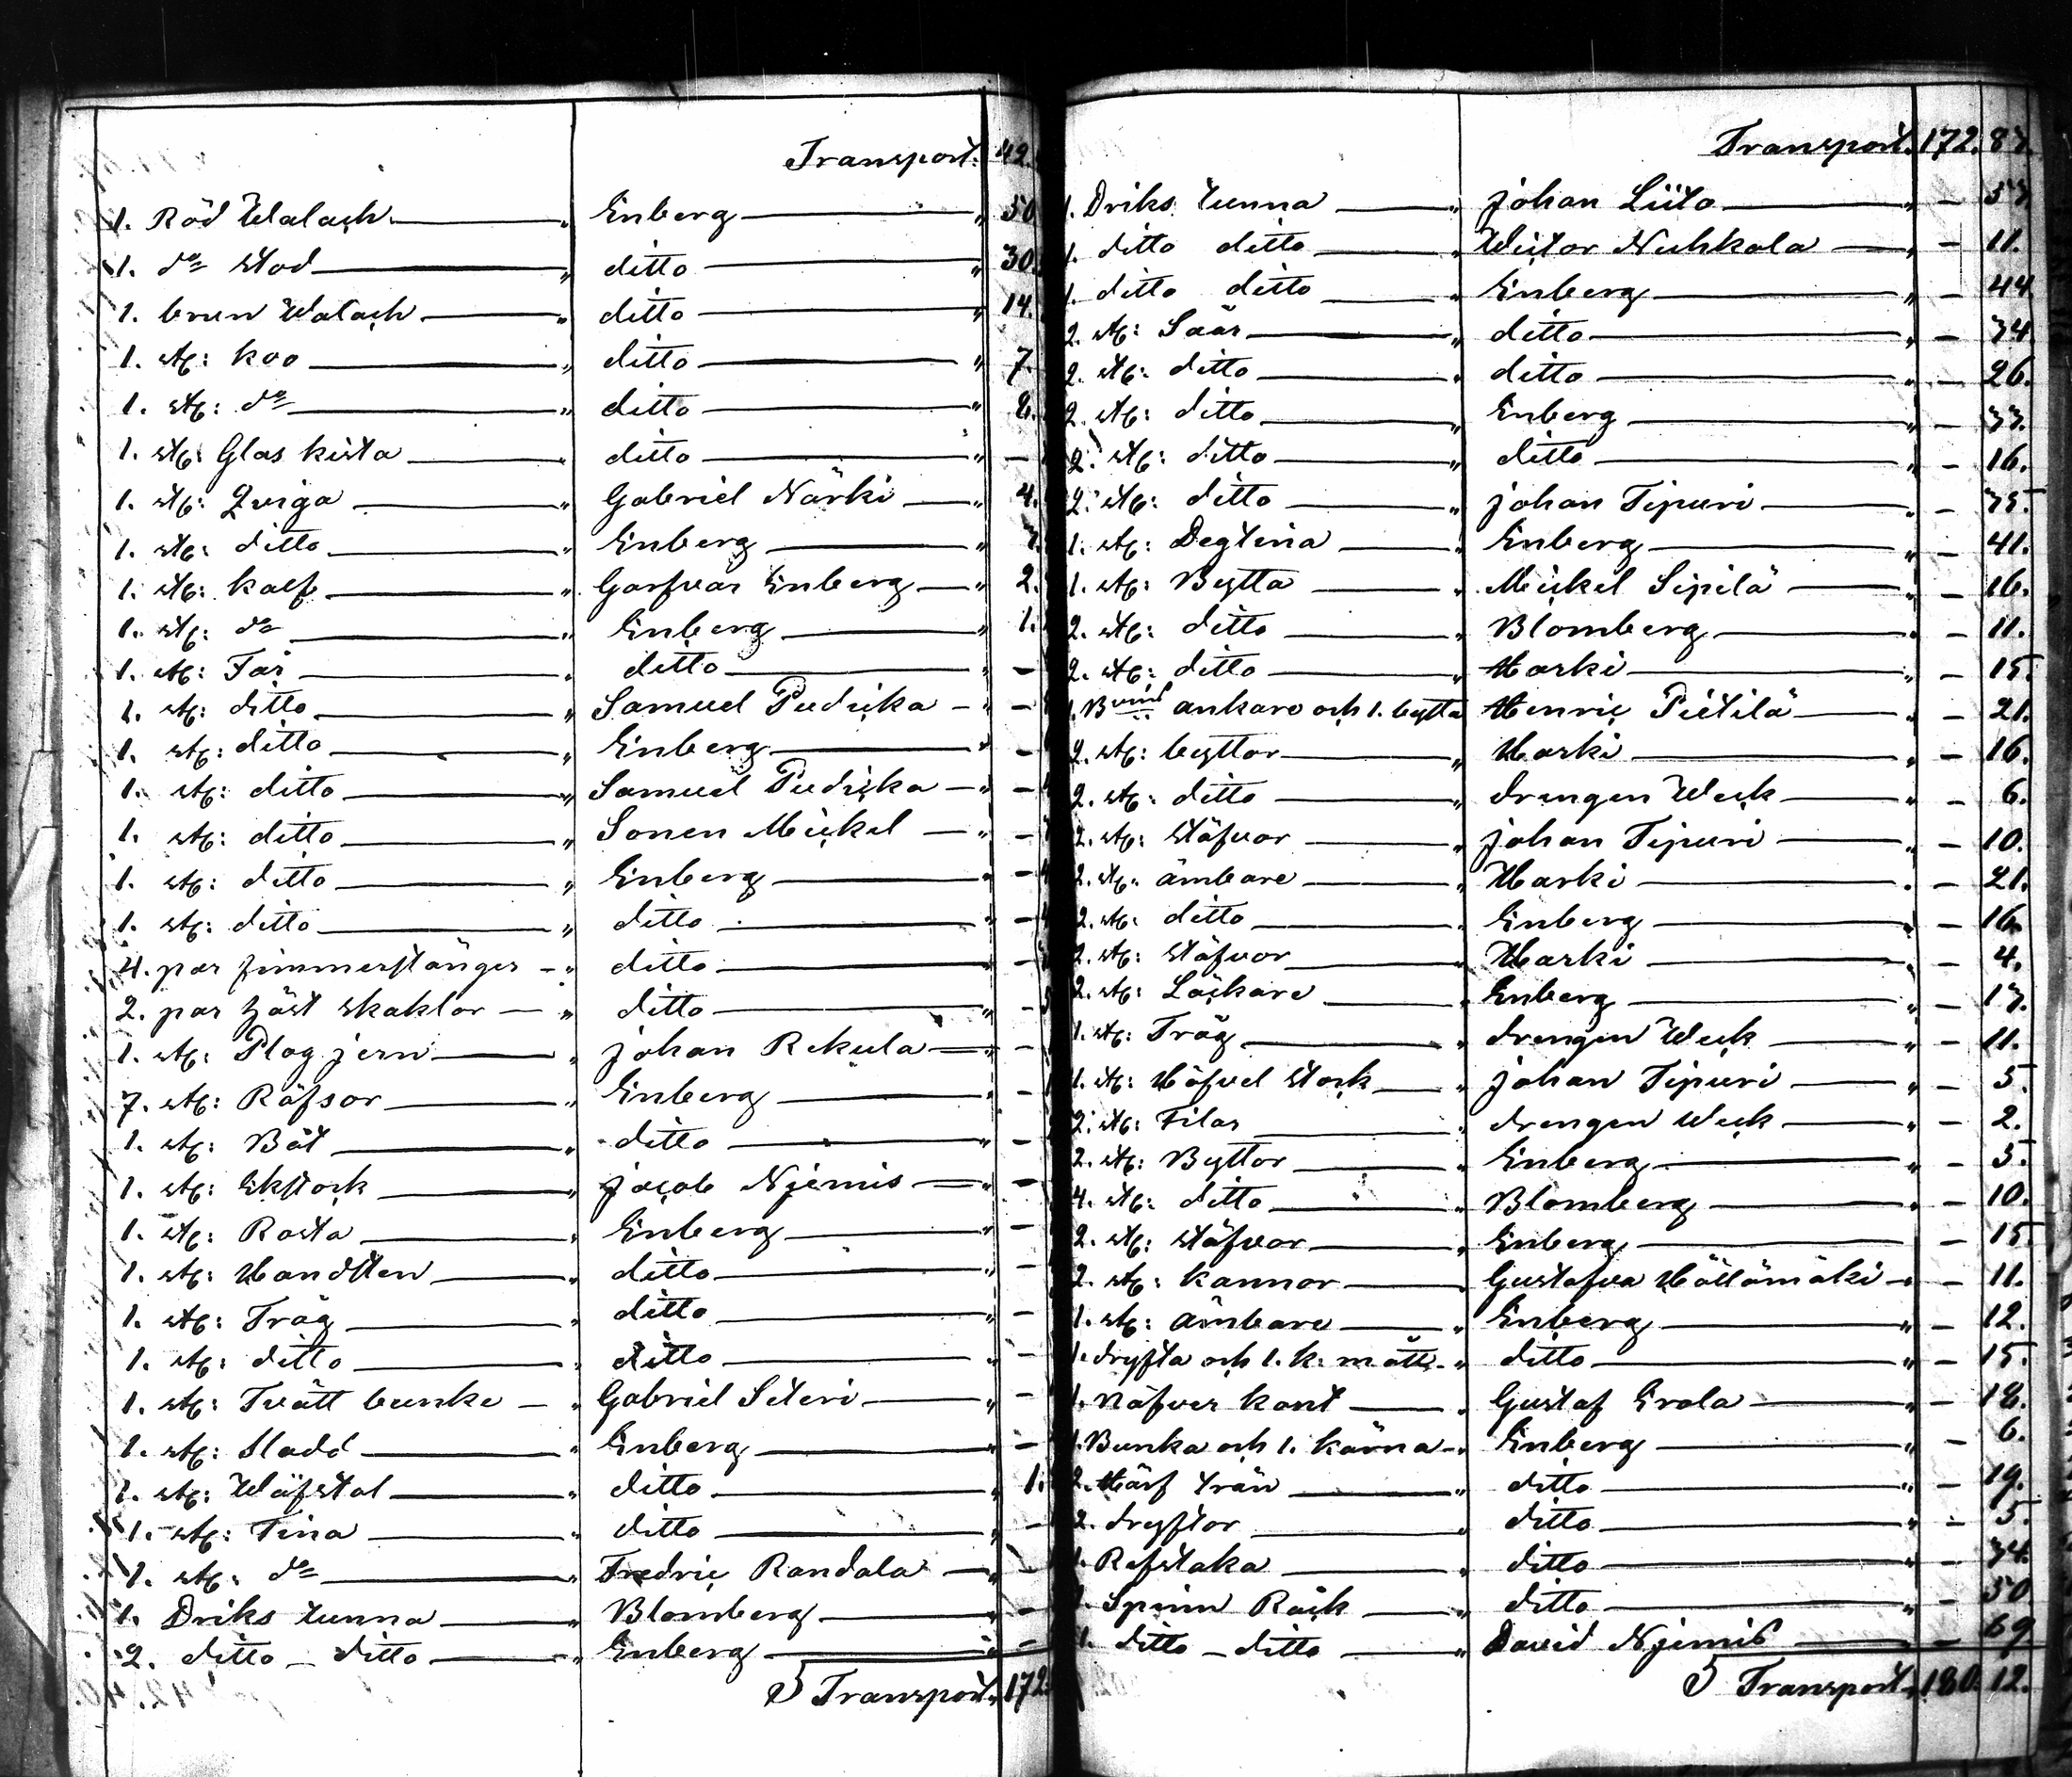 Transport. 42.
1. Röd Walach Enberg " 50
1. do Stod ditto " 30
1. brun Walach ditto " 14.
1. st: koo ditto " 7.
1. st: do ditto " 8.
1. st: Glas kista ditto " —
1. st: Qviga Gabriel Närki " 4.
1. st: ditto Enberg "
1. st: kalf Garfvar Enberg " 2.
1. st: do Enberg " 1.
1. st: Får ditto " —
1. st: ditto Samuel Pudicka " —
1. st: ditto Enberg " —
1. st: ditto Samuel Pudicka " —
1. st: ditto Sonen Mickel " —
1. st: ditto Enberg " —
1. st: ditto ditto " —
4. par Timmerstänger ditto " —
2. par häst skaklor ditto " —
1. st: Plog jern Johan Rekula " —
7. st: Räfsor Enberg " —
1. st: Båt ditto " —
1. st: Ekstock Jacob Njemis " —
1. st: Rosta Enberg " —
1. st: Handsten ditto " —
1. st: Tråg ditto " —
1. st: ditto ditto " —
1. st: Tvätt bunke Gabriel Seteri " —
1. st: Sladd Enberg " —
1. st: Wäfstol ditto " 1.
1. st: Tina ditto " —
1. st: do Fredric Randala " —
1. Driks tunna Blomberg " —
2. ditto – ditto Enberg " —
Transport 172.
Transport. 172. 87.
1. Driks tunna Johan Liito " — 57
1. ditto ditto Wictor Nuhkala " — 11.
1. ditto ditto Enberg " — 44
2. st: Såår ditto " — 74
2. st: ditto ditto " — 26.
2. st: ditto Enberg " — 37.
2. st: ditto ditto " — 16.
2. st: ditto Johan Tipuri " — 75
1. st: Degtina Enberg " — 41.
1. st: Bytta Mickel Sipilä " — 16.
2. st: ditto Blomberg " — 11.
2. st: ditto Harki " — 15.
1. Bvins ankare och 1. bytta Henric Pietilä " — 21.
2. st: byttor Harki " — 16.
2. st: ditto drengen Weck " — 6.
2. st: Stäfvor Johan Tipuri " — 10.
2. st: ämbare Harki " — 21.
2. st: ditto Enberg " — 16.
2. st: Stäfvor Harki " — 4.
2. st: Läckare Enberg " — 17.
1. st: Tråg drengen Weck " — 11.
1. st: Höfvel Stock Johan Tipuri " — 5.
2. st: Filar drengen Weck " — 2.
2. st: Byttor Enberg " — 5.
4. st: ditto Blomberg " — 10.
2. st: Stäfvor Enberg " — 15
2. st: Kannor Gustafva Höllömäki " — 11.
1. st: ämbare Enberg " — 12.
1. dryfta och 1. k: mått ditto " — 15.
1. Näfver kont Gustaf Erola " — 18.
1. Bunka och 1. kärna Enberg " — 6.
2. Härf trän ditto " — 19.
2. dryftor ditto " — 5.
1. Refstaka ditto " — 74.
1. Spinn Råck ditto " — 50
1. ditto – ditto David Njemis " — 69
Transport 180. 12.